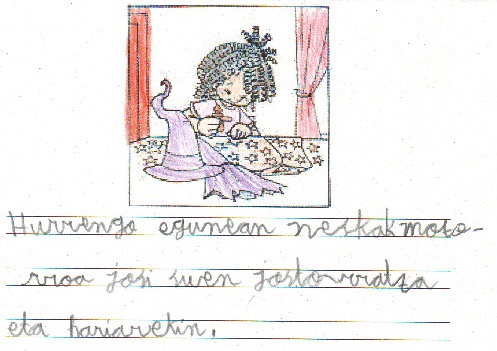 Hurrengo egunean neskak moto-
rroa josi zuen jostorratza
eta hariarekin.